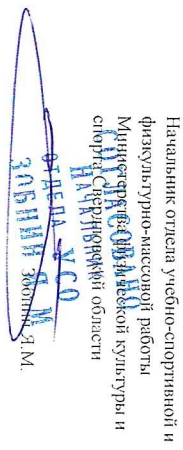 Начальник отдела учебно-спортивной и
физкультурно-массовой работы
Министерства физической культуры и
спорта Свердловской области
Зобнин Я.М.
СОГЛАСОВАНО
НАЧАЛЬНИК
ОТДЕЛА УСО
ЗОБНИН Я М